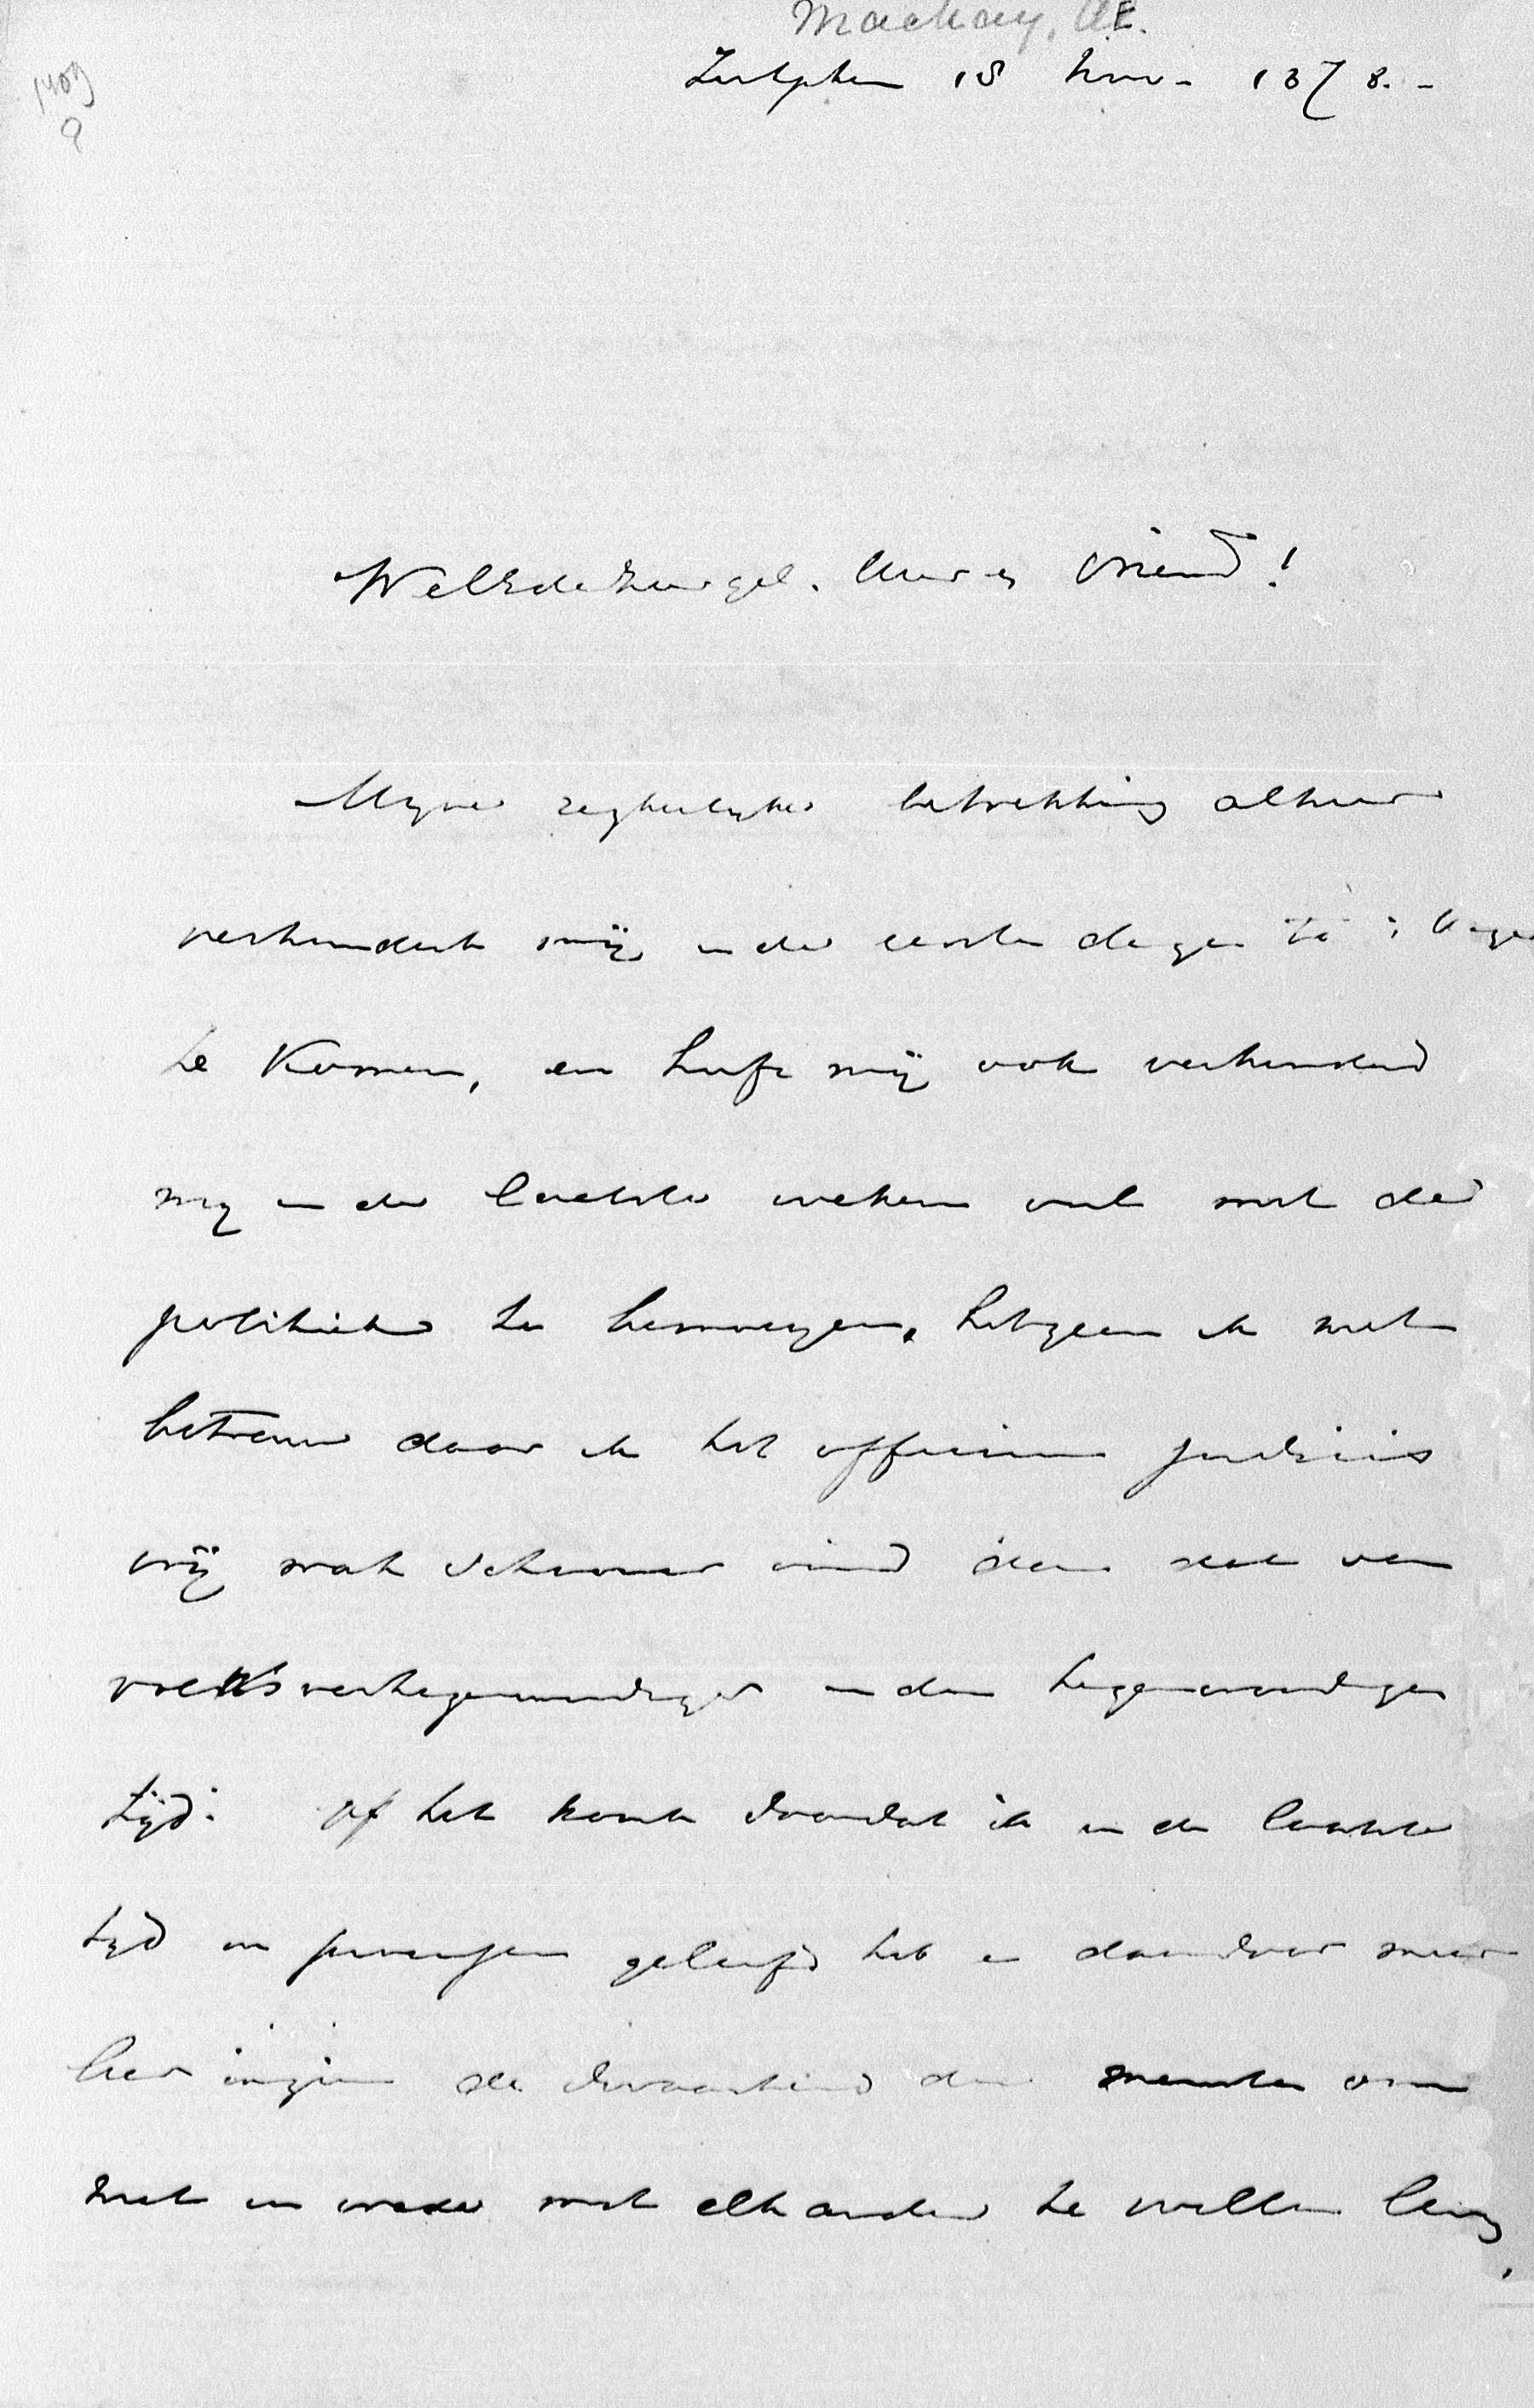 Mackay, AE.
1409
9
Zutphen 18 Nov. 1878.-
WelEdelZeergel. Heer en Vriend!
Mijne regterlijke betrekking alhier
verhindert mij in de eerste dagen te 's Hage
te komen, en heeft mij ook verhinderd
mij in de laatste weken veel met de
politiek te bemoeyen, hetgeen ik niet
betreur daar ik het officium judicis
vrij wat schooner vind dan dat van
volksvertegenwoordiger in den tegenwoordigen
tijd. Of het komt doordat ik in de laatste
tijd in processen geleefd heb en daardoor meer
leer inzien de dwaasheid der menschen om
niet in vrede met elkander te willen leven,